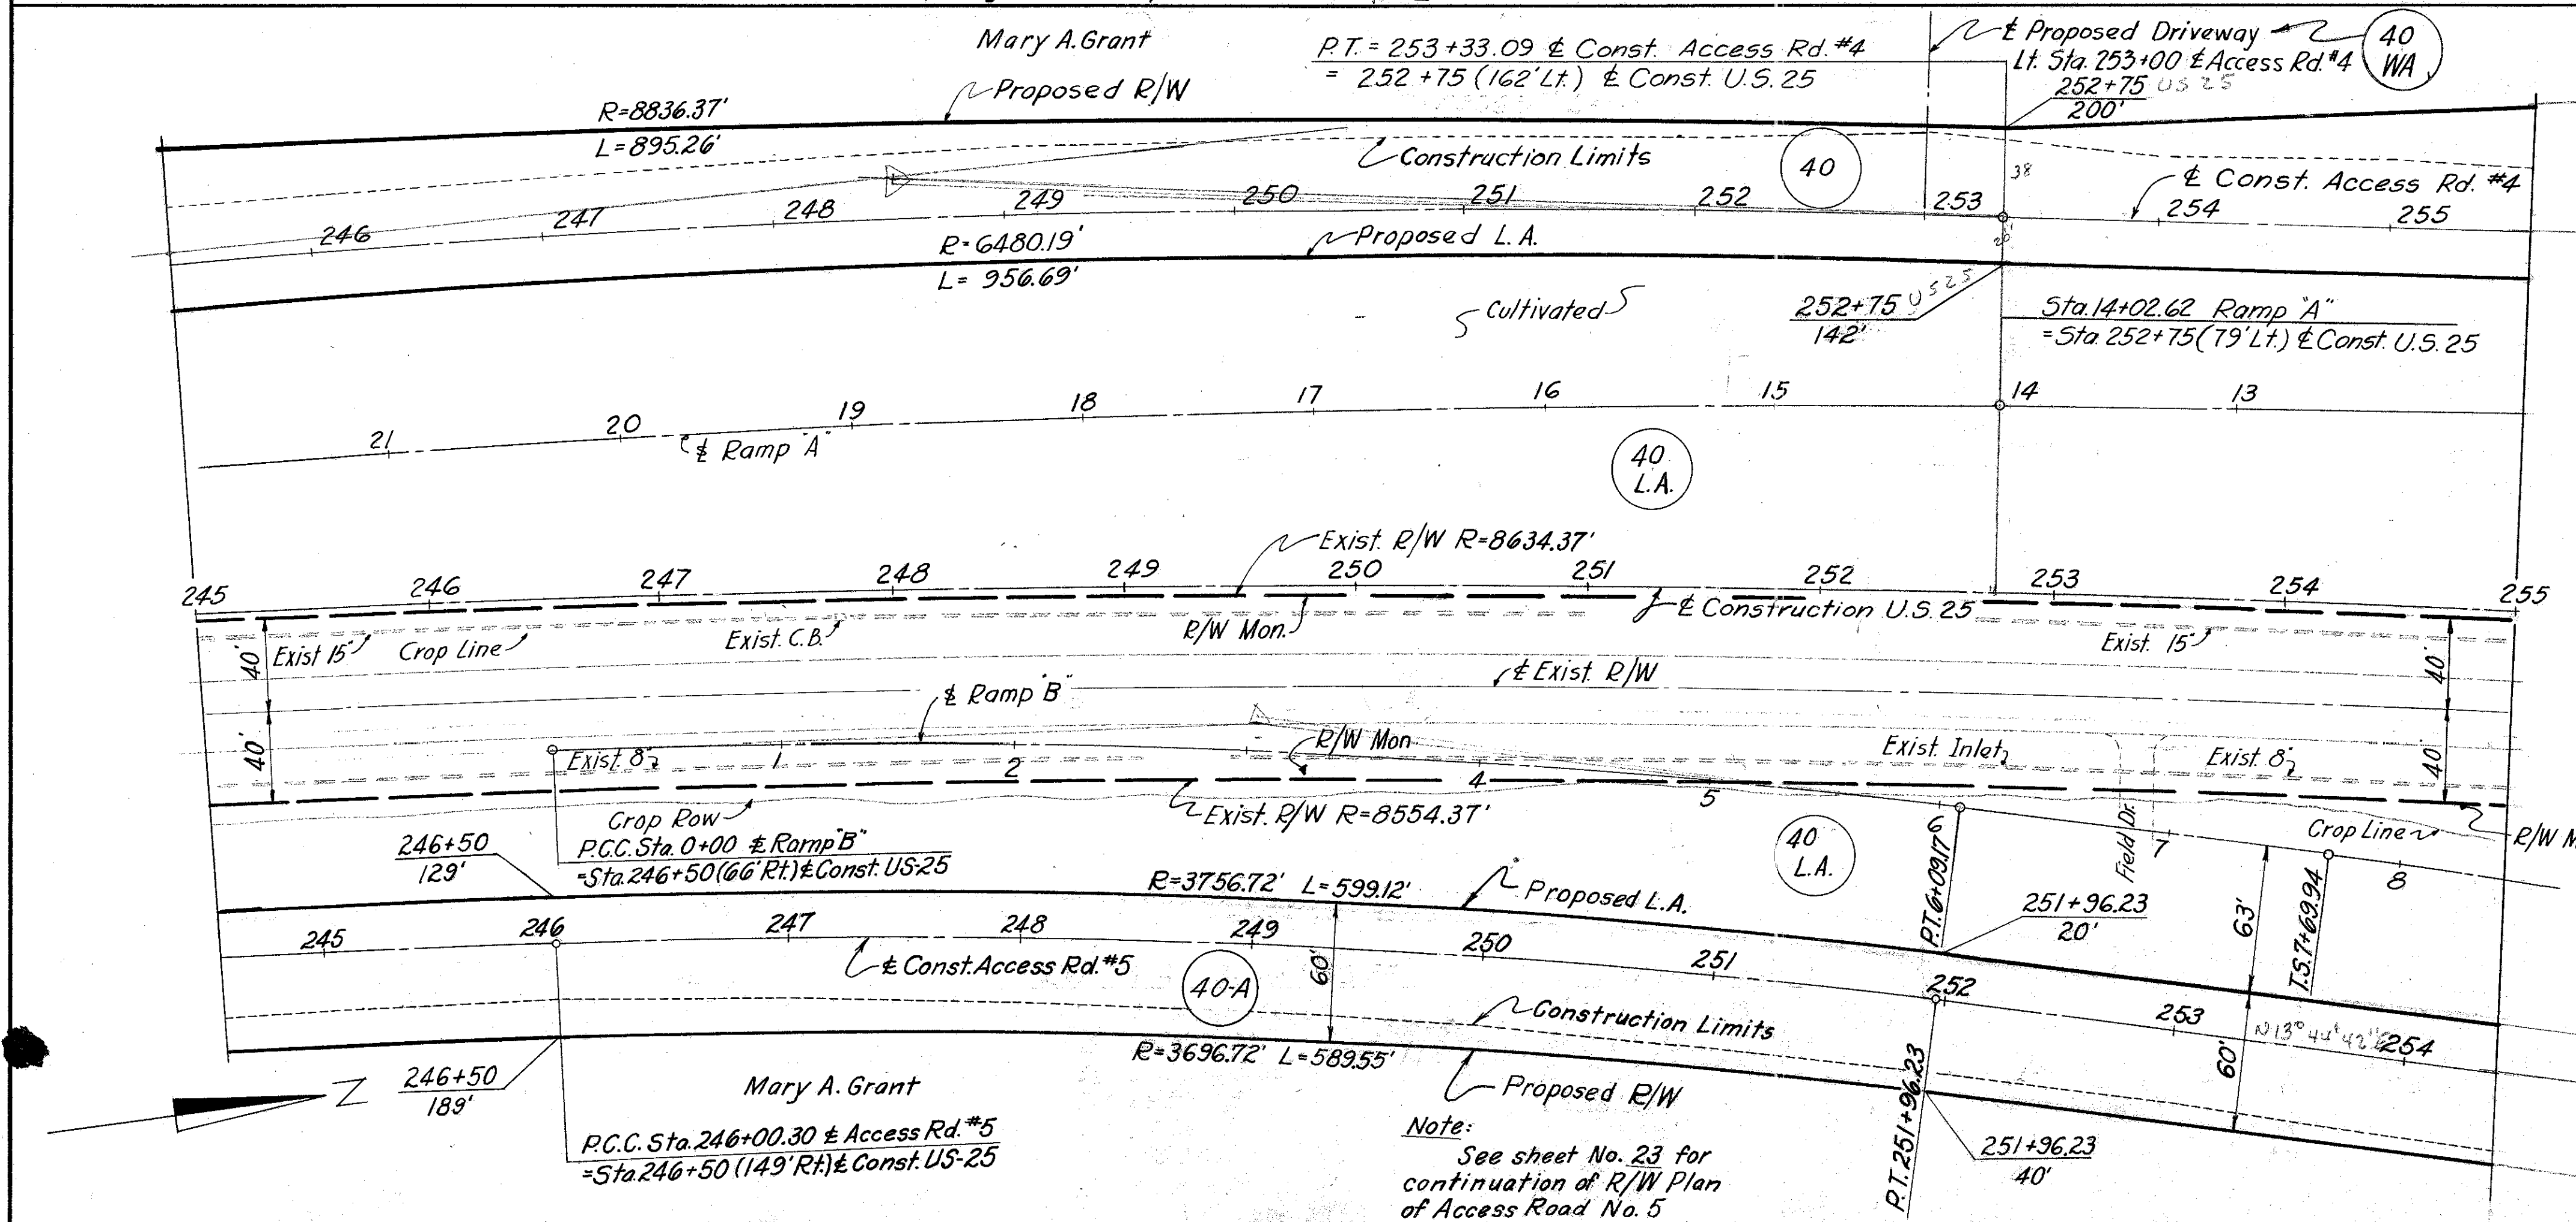 Mary A. Grant
P.T. = 253+33.09 ℄ Const. Access Rd. #4
= 252+75 (162' Lt.) ℄ Const. U.S. 25
℄ Proposed Driveway
Lt. Sta. 253+00 ℄ Access Rd. #4
40
WA
252+75 US 25
200'
Proposed R/W
R=8836.37'
L=895.26'
Construction Limits
40
38
℄ Const. Access Rd. #4
246
247
248
249
250
251
252
253
254
255
R=6480.19'
L= 956.69'
Proposed L.A.
20'
Cultivated
252+75 US 25
142'
Sta. 14+02.62 Ramp "A"
=Sta. 252+75 (79' Lt.) ℄ Const. U.S. 25
21
20
19
18
17
16
15
14
13
℄ Ramp "A"
40
L.A.
Exist. R/W R=8634.37'
245
246
247
248
249
250
251
252
253
254
255
℄ Construction U.S. 25
Exist 15"
Crop Line
Exist. C.B.
R/W Mon.
Exist. 15"
40'
40'
℄ Exist. R/W
℄ Ramp "B"
40'
40'
R/W Mon
Exist. 8"
Exist. Inlet
Exist. 8"
1
2
4
5
6
7
8
Exist. R/W R=8554.37'
Crop Row
Field Dr.
Crop Line
R/W M
246+50
129'
P.C.C. Sta. 0+00 ℄ Ramp "B"
=Sta. 246+50 (66' Rt.) ℄ Const. US-25
40
L.A.
P.T. 6+09.17
T.S. 7+69.94
R=3756.72' L=599.12'
Proposed L.A.
251+96.23
20'
63'
245
246
247
248
249
250
251
252
253
254
℄ Const. Access Rd. #5
40-A
60'
Construction Limits
N13° 44' 42"E
60'
R=3696.72' L=589.55'
Proposed R/W
246+50
189'
Z
Mary A. Grant
P.C.C. Sta. 246+00.30 ℄ Access Rd. #5
=Sta. 246+50 (149' Rt.) ℄ Const. US-25
P.T. 251+96.23
251+96.23
40'
Note:
See sheet No. 23 for
continuation of R/W Plan
of Access Road No. 5